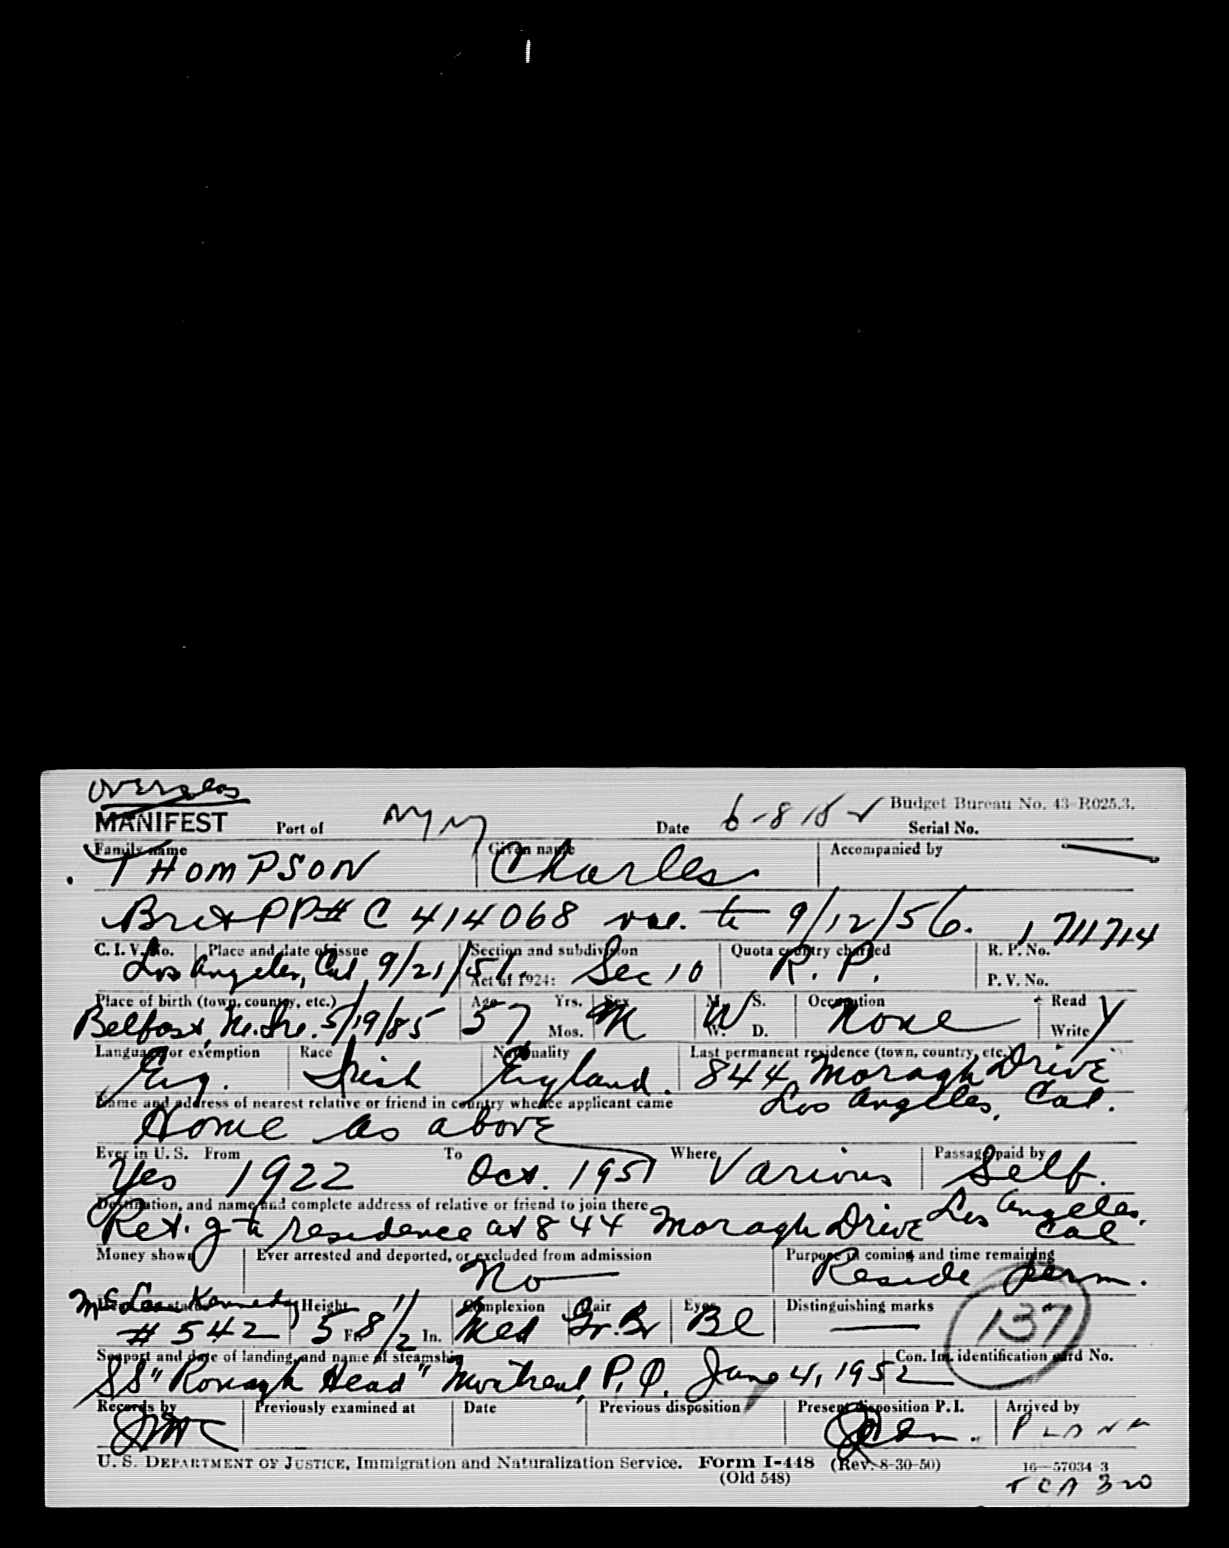 Overseas
MANIFEST Port of NYNY Date 6-8-52 Budget Bureau No. 43-R025.3.
Serial No.
Family name THOMPSON Given name Charles Accompanied by —
Brit PP# C 414068 val. to 9/12/56. 1711714
C. I. V. No. Place and date of issue Los Angeles, Cal, 9/21/51. Section and subdivision Act of 1924: Sec 10 Quota country charged R. P. R. P. No.
P. V. No.
Place of birth (town, country, etc.) Belfast, No. Ire. 5/19/85 Age 57 Yrs. Mos. Sex M M. S. W. D. W Occupation None Read Write Y
Language or exemption Eng. Race Irish Nationality England. Last permanent residence (town, country, etc.) 844 Moragh Drive
Los Angeles, Cal.
Name and address of nearest relative or friend in country whence applicant came
Home as above
Ever in U. S. Yes From 1922 To Oct. 1951 Where Various Passage paid by Self.
Destination, and name and complete address of relative or friend to join there
Ret. g to residence at 844 Moragh Drive Los Angeles, Cal
Money shown Ever arrested and deported, or excluded from admission No Purpose in coming and time remaining Reside perm.
Kennedy
# 542 Height 5 Ft. 8 1/2 In. Complexion Med Hair Gr. Br Eyes Bl Distinguishing marks — 137
Seaport and date of landing, and name of steamship Con. Int. identification card No.
SS "Ronagh Head" Montreal, P. Q. June 4, 1952
Records by Previously examined at Date Previous disposition Present disposition P. I. Arrived by PLANE
U. S. DEPARTMENT OF JUSTICE, Immigration and Naturalization Service. Form I-448 (Rev. 8-30-50) 16—57034-3
(Old 548) TCA 320